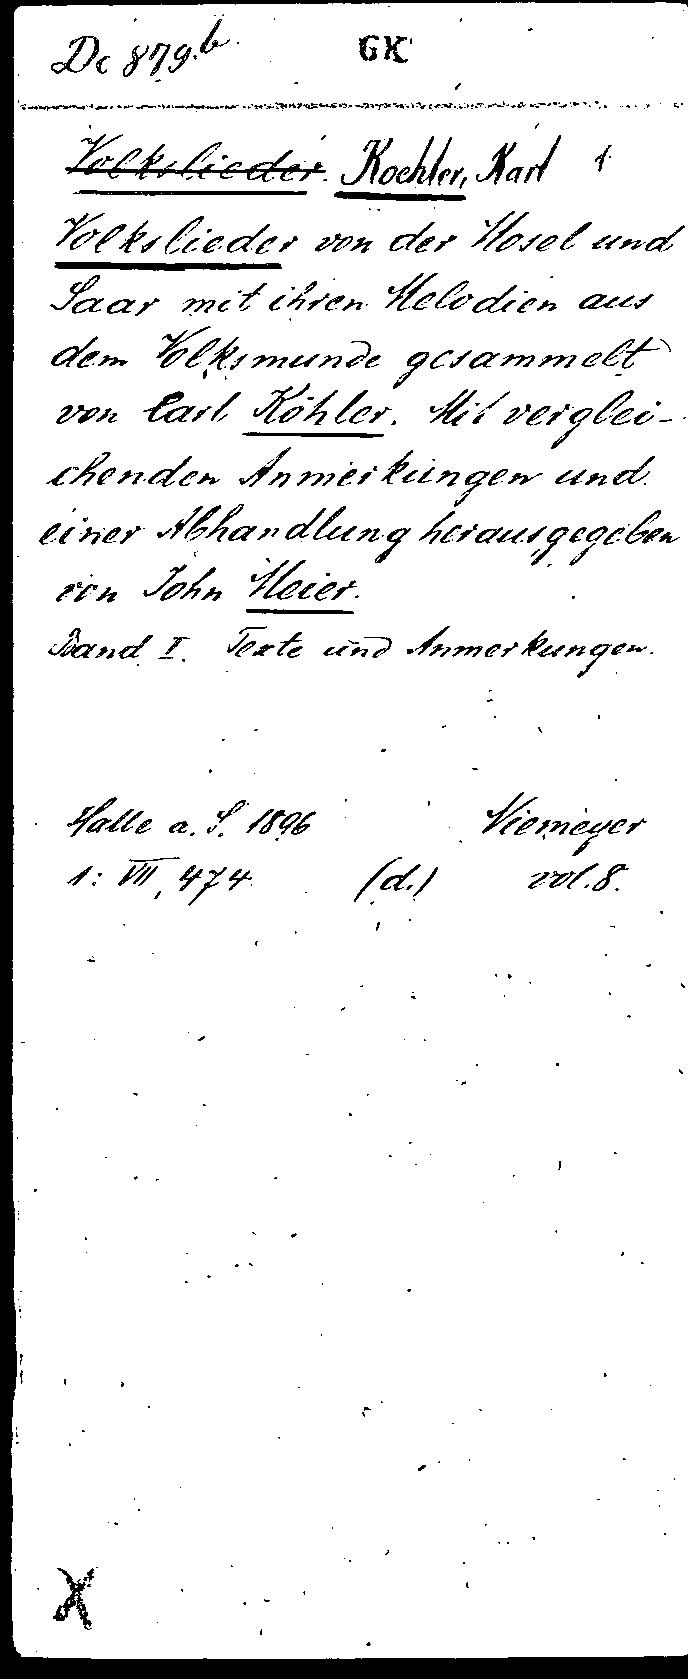 Dc 879.b GK
Volkslieder. Koehler, Karl 1
Volkslieder von der Mosel und
Saar mit ihren Melodien aus
dem Volksmunde gesammelt
von Carl Köhler. Mit verglei-
chenden Anmerkungen und
einer Abhandlung herausgegeben
von John Meier.
Band I. Texte und Anmerkungen.
Halle a. S. 1896 Niemeyer
1: VII, 474 (d.) vol. 8.
X